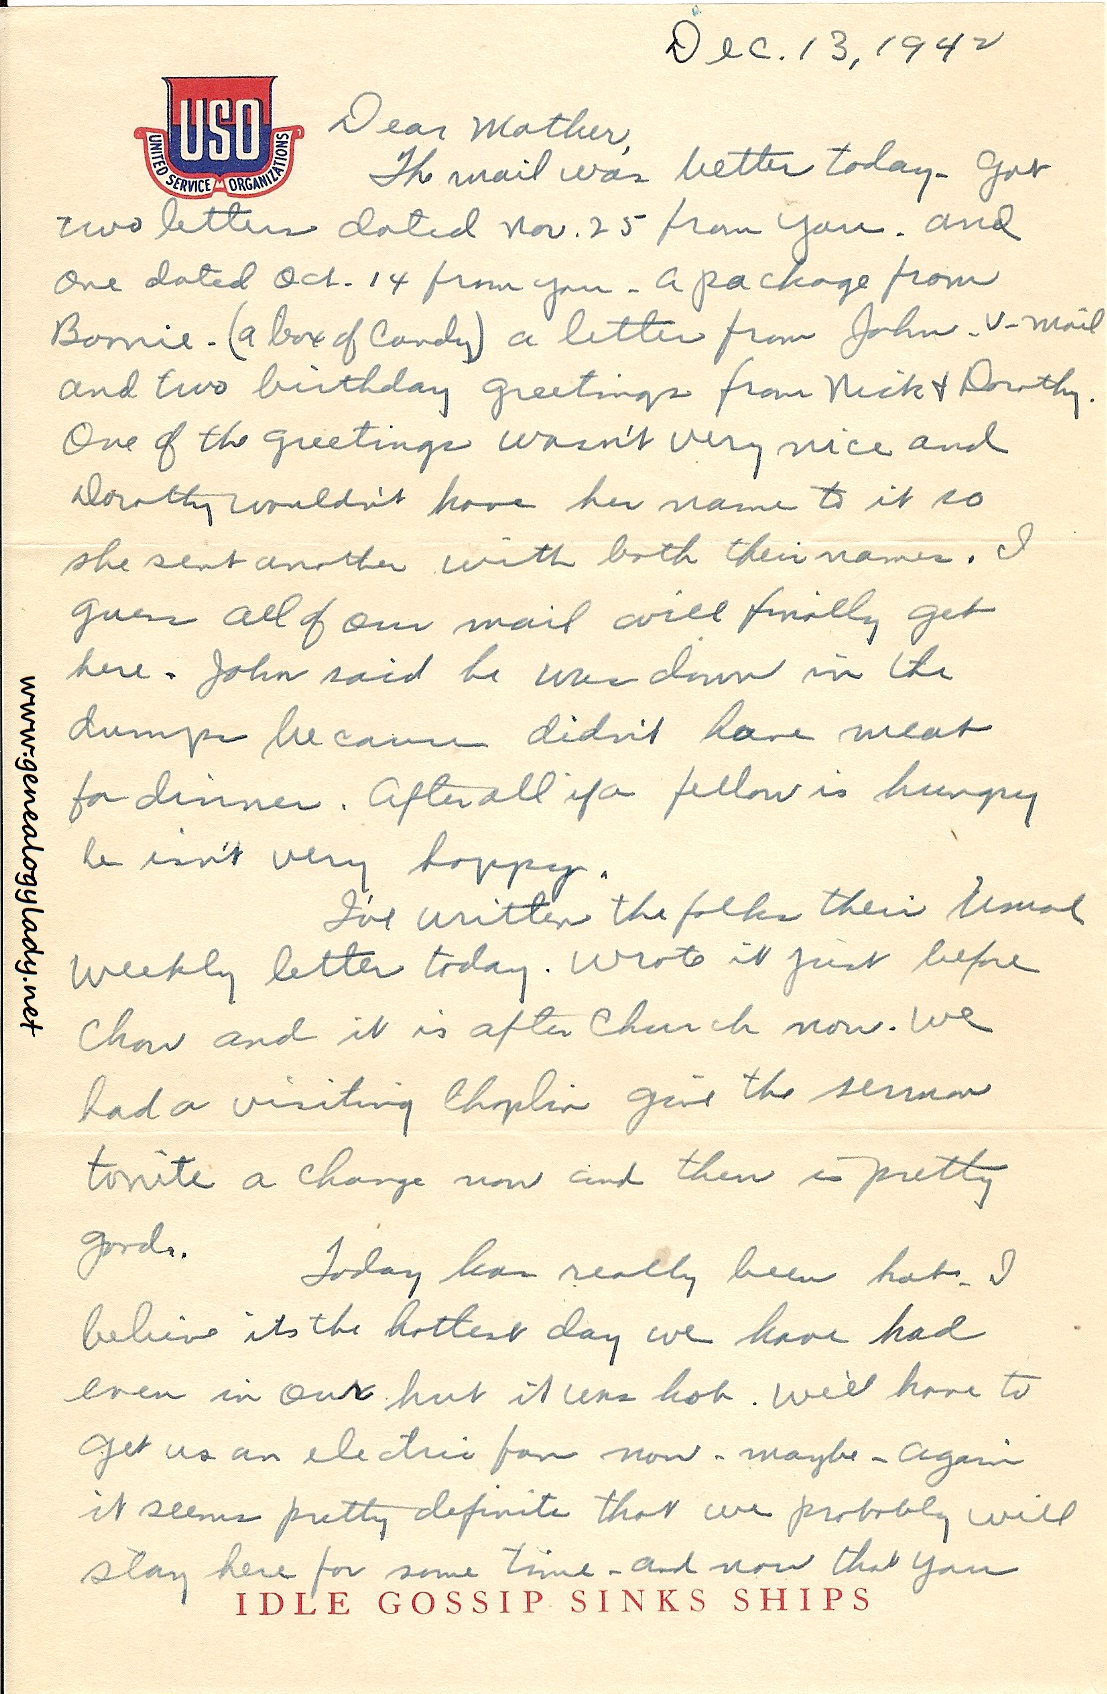 Dec. 13, 1942
USO
UNITED SERVICE ORGANIZATIONS
Dear Mother,
The mail was better today - Got
two letters dated Nov. 25 from you. and
one dated Oct. 14 from you - a package from
Bonnie - (a box of Candy) a letter from John - V-Mail
and two birthday greetings from Nick & Dorothy.
One of the greetings wasn't very nice and
Dorothy wouldn't have her name to it so
she sent another with both their names. I
guess all of our mail will finally get
here. John said he was down in the
dumps because didn't have meat
for dinner. After all if a fellow is hungry
he isn't very happy.
I've written the folks their usual
weekly letter today. Wrote it just before
Chow and it is after Church now. We
had a visiting Chaplin give the sermon
tonite a change now and then is pretty
good.
Today has really been hot - I
believe its the hottest day we have had
even in our hut it was hot. We'll have to
get us an electric fan now - maybe - again
it seems pretty definite that we probably will
stay here for some time - and now that you
IDLE GOSSIP SINKS SHIPS
www.genealogylady.net